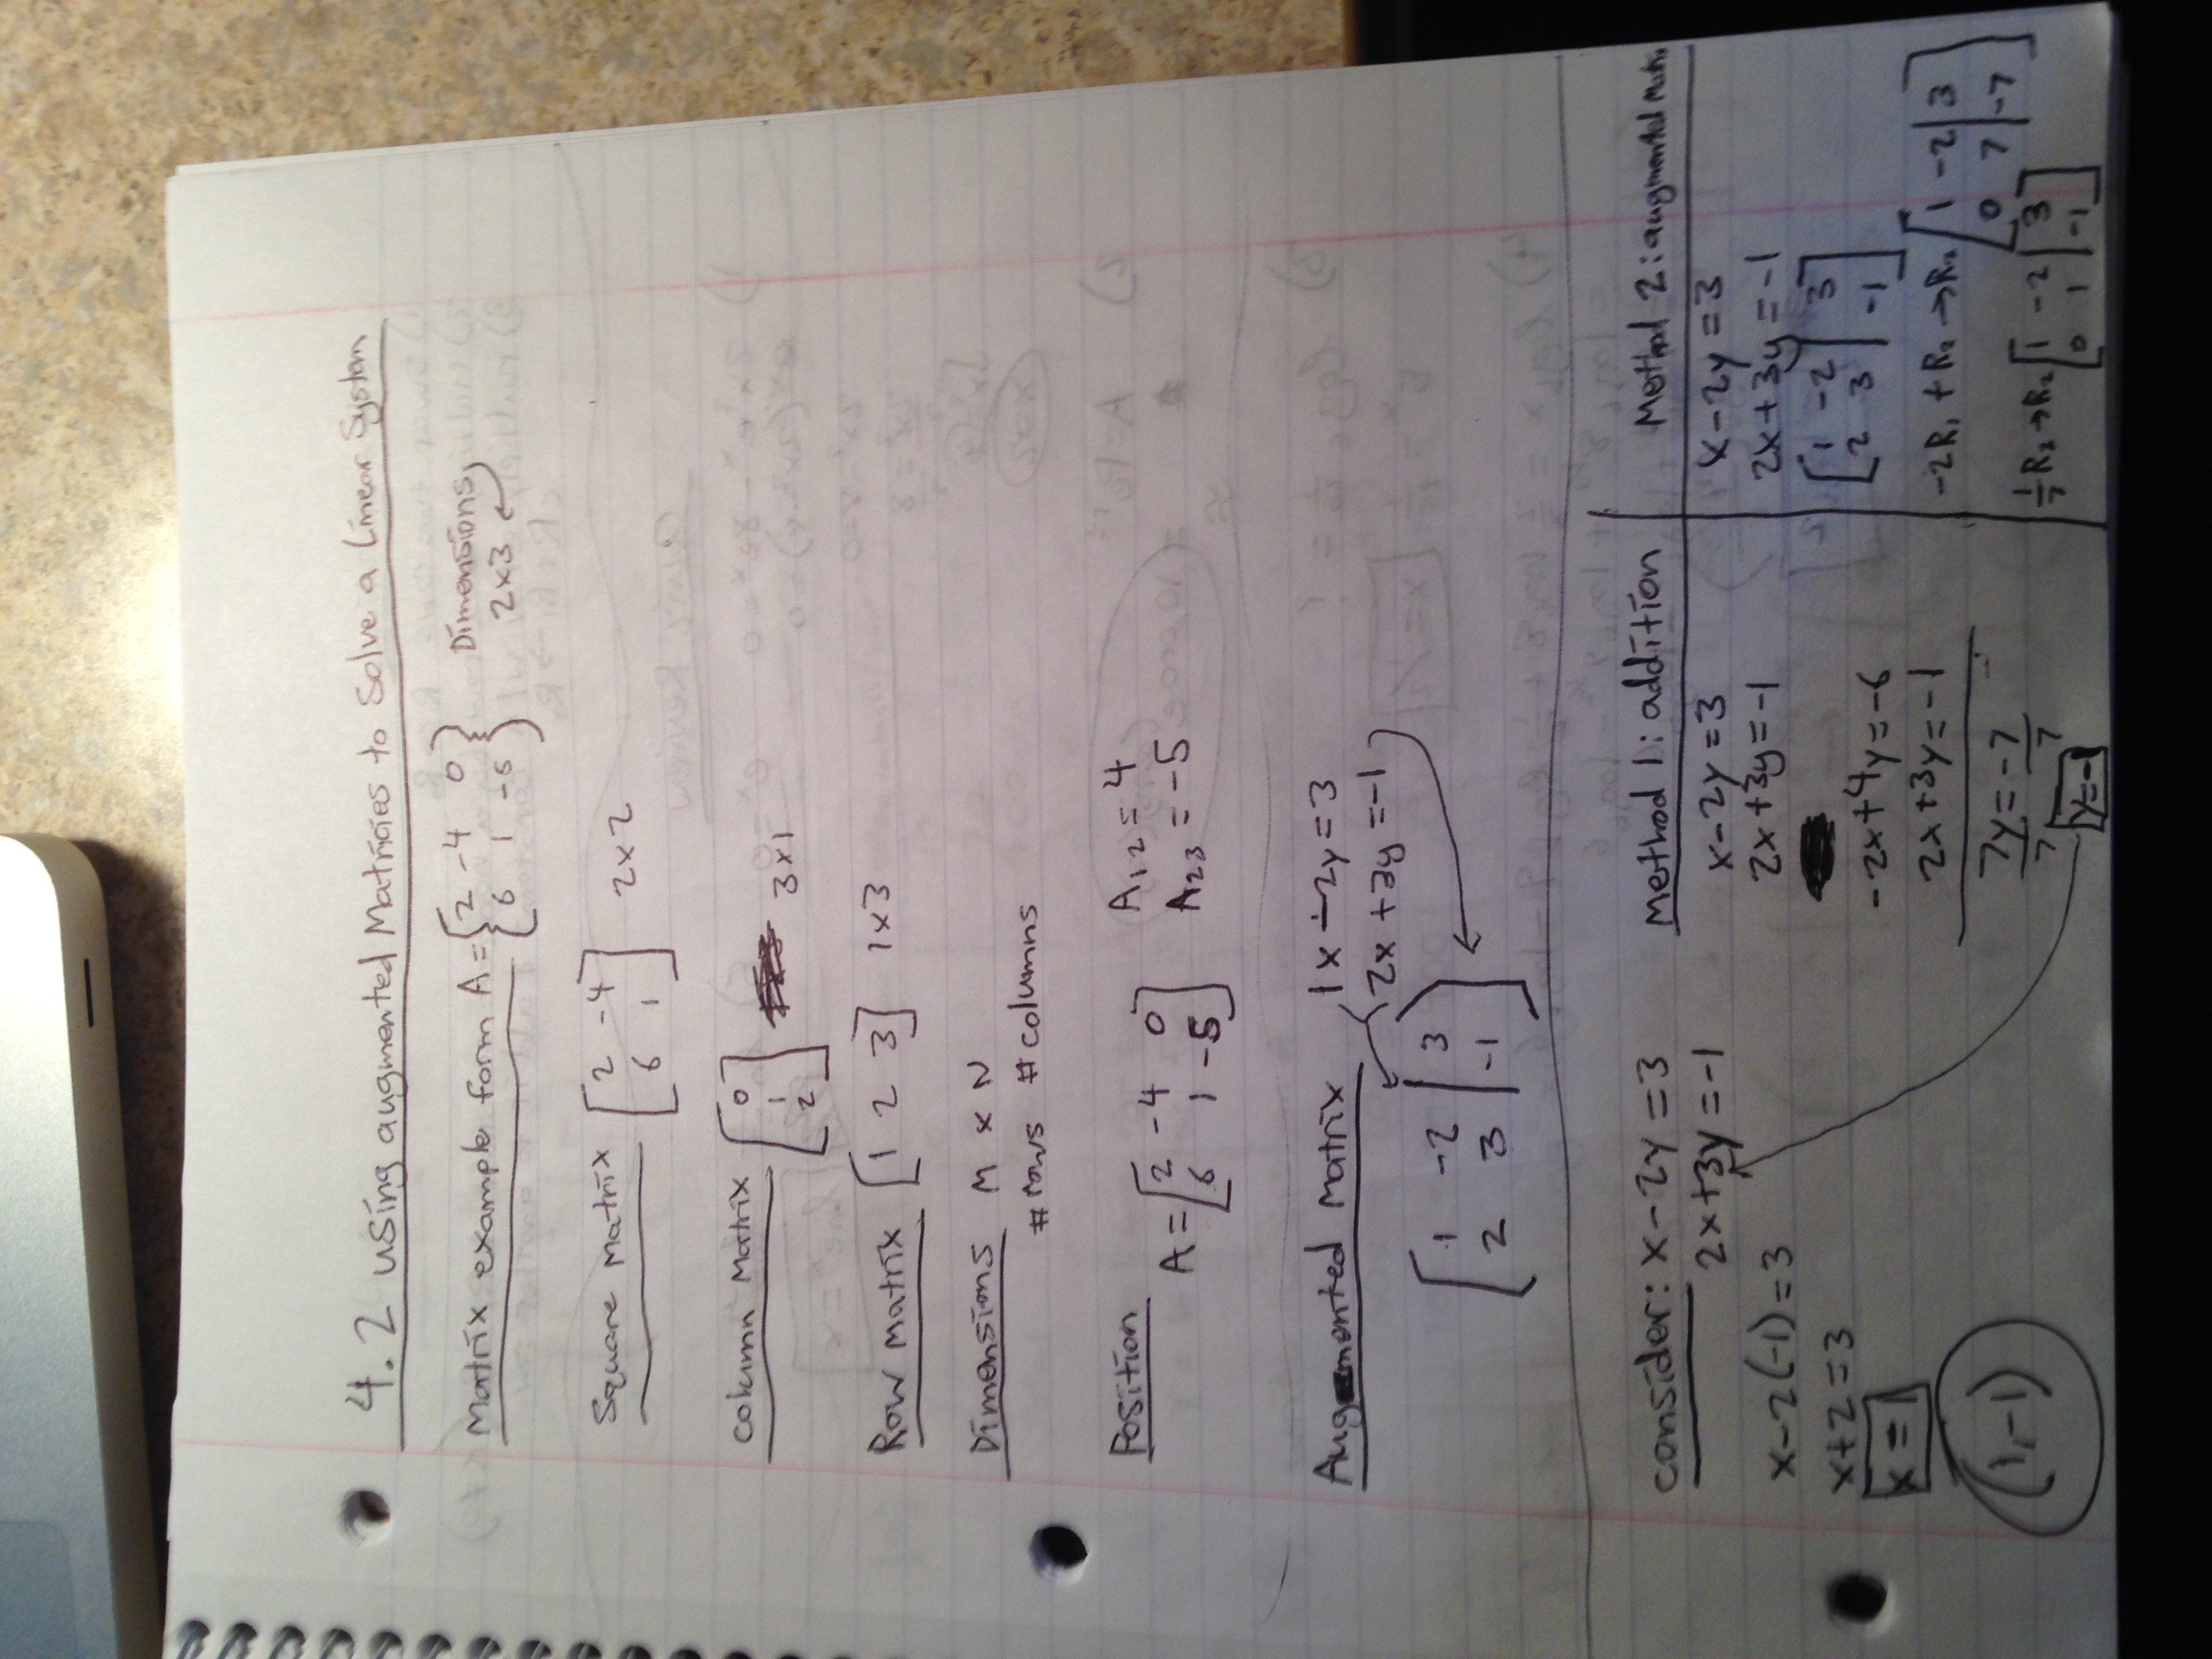 4.2 Using augmented Matricies to Solve a Linear System
Matrix example form A = [2 -4 0 Dimensions
6 1 -5] 2x3
Square Matrix [2 -4
6 1] 2x2
Column Matrix [0
1
2] 3x1
Row Matrix [1 2 3] 1x3
Dimensions M x N
# rows # columns
Position
A = [2 -4 0
6 1 -5]
A12 = 4
A23 = -5
Augmented Matrix 1x - 2y = 3
2x + 3y = -1
[1 -2 | 3
2 3 | -1]
Consider: x - 2y = 3
2x + 3y = -1
x - 2(-1) = 3
x + 2 = 3
x = 1
(1, -1)
Method 1: addition
x - 2y = 3
2x + 3y = -1
-2x + 4y = -6
2x + 3y = -1
7y = -7
7 7
y = -1
Method 2: augmented Matri
x - 2y = 3
2x + 3y = -1
[1 -2 | 3
2 3 | -1]
-2R1 + R2 → R2 [1 -2 | 3
0 7 | -7
1/7 R2 → R2 [1 -2 | 3
0 1 | -1]